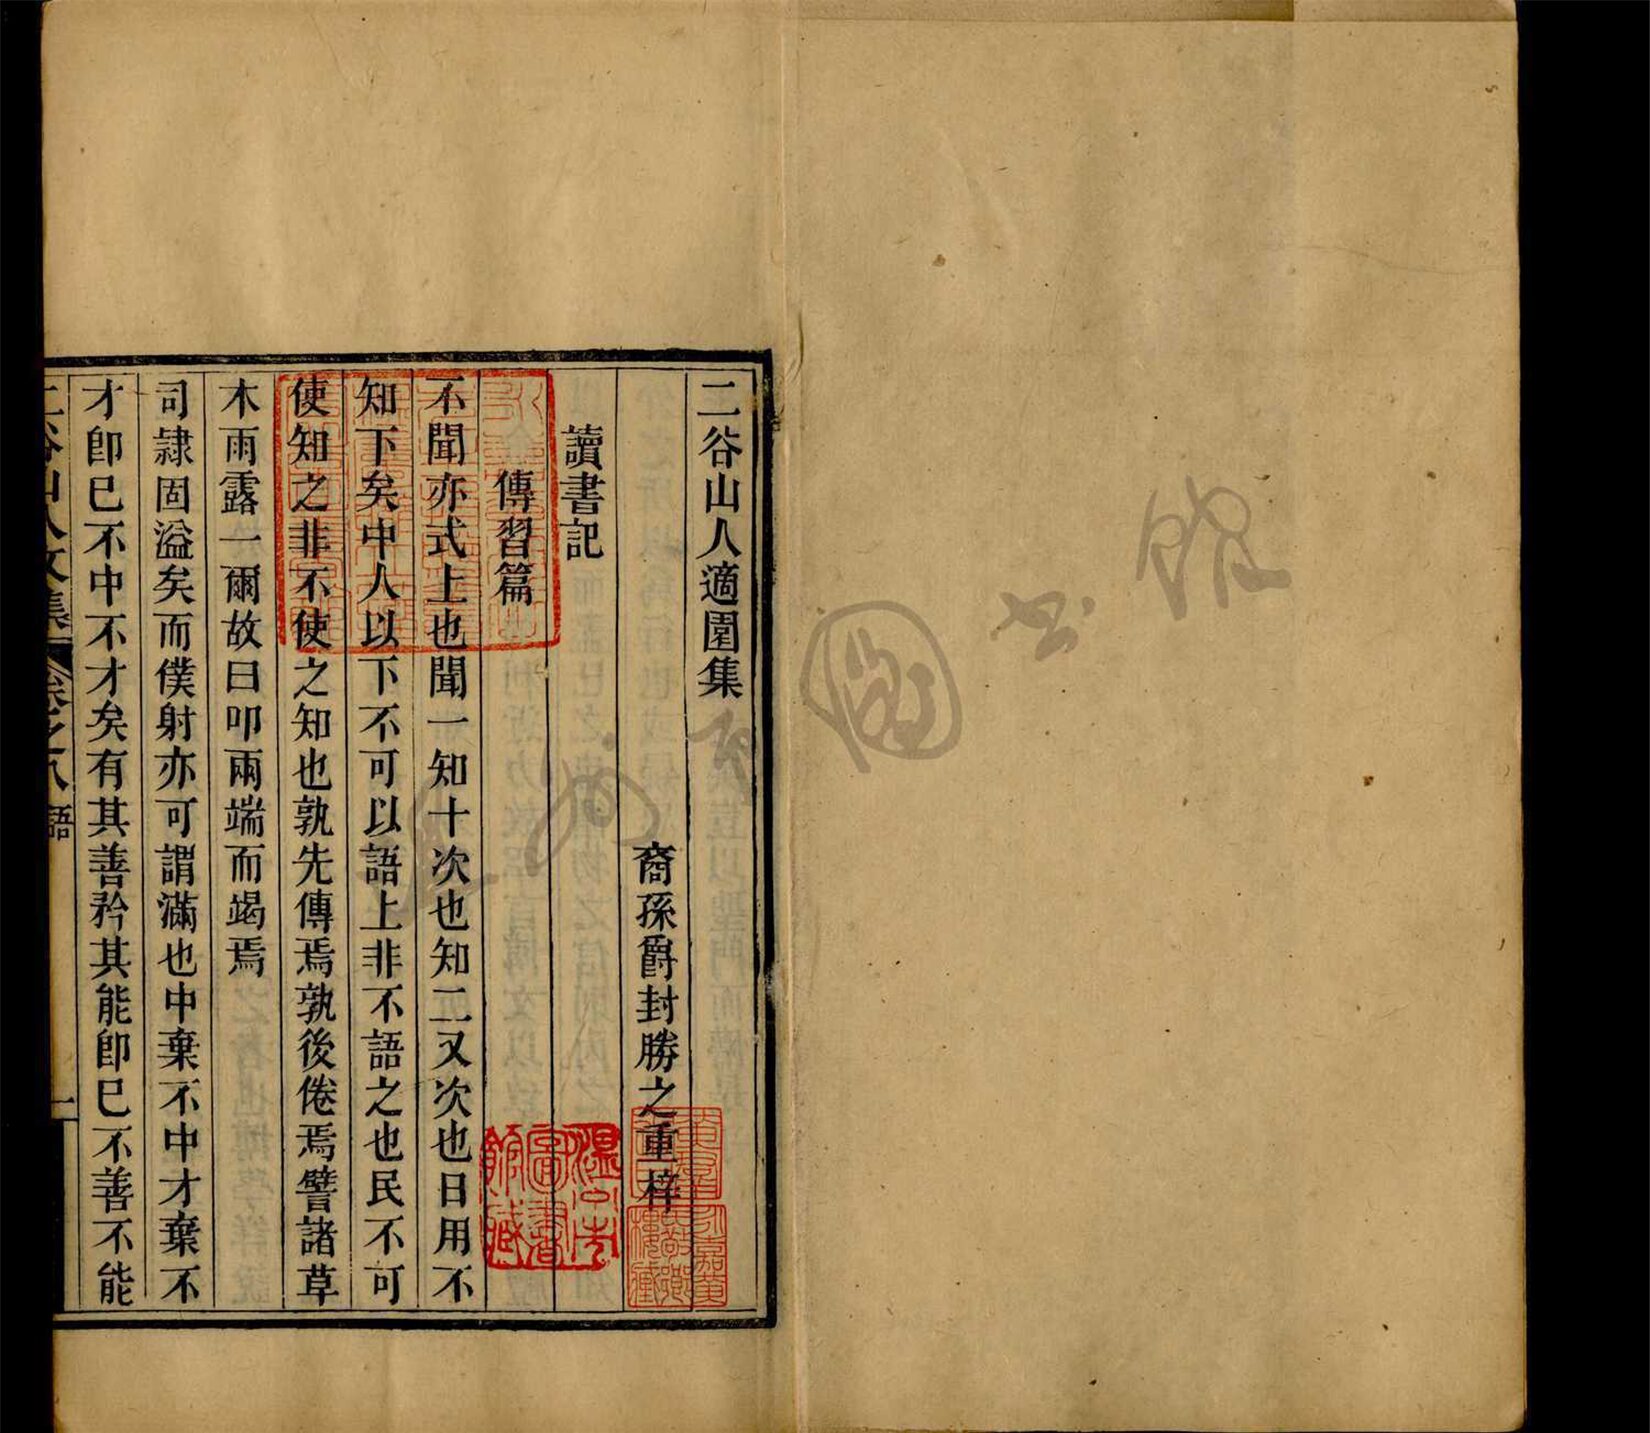 二谷山人適園集
裔孫爵封勝之重梓
讀書記
傳習篇
不聞亦式上也聞一知十次也知二又次也日用不
知下矣中人以下不可以語上非不語之也民不可
使知之非不使之知也孰先傳焉孰後倦焉譬諸草
木雨露一爾故曰叩兩端而竭焉
司隷固溢矣而僕射亦可謂滿也中棄不中才棄不
才卽已不中不才矣有其善矜其能卽已不善不能
二谷山人文集 卷之八 語 一
溫州市圖書館藏